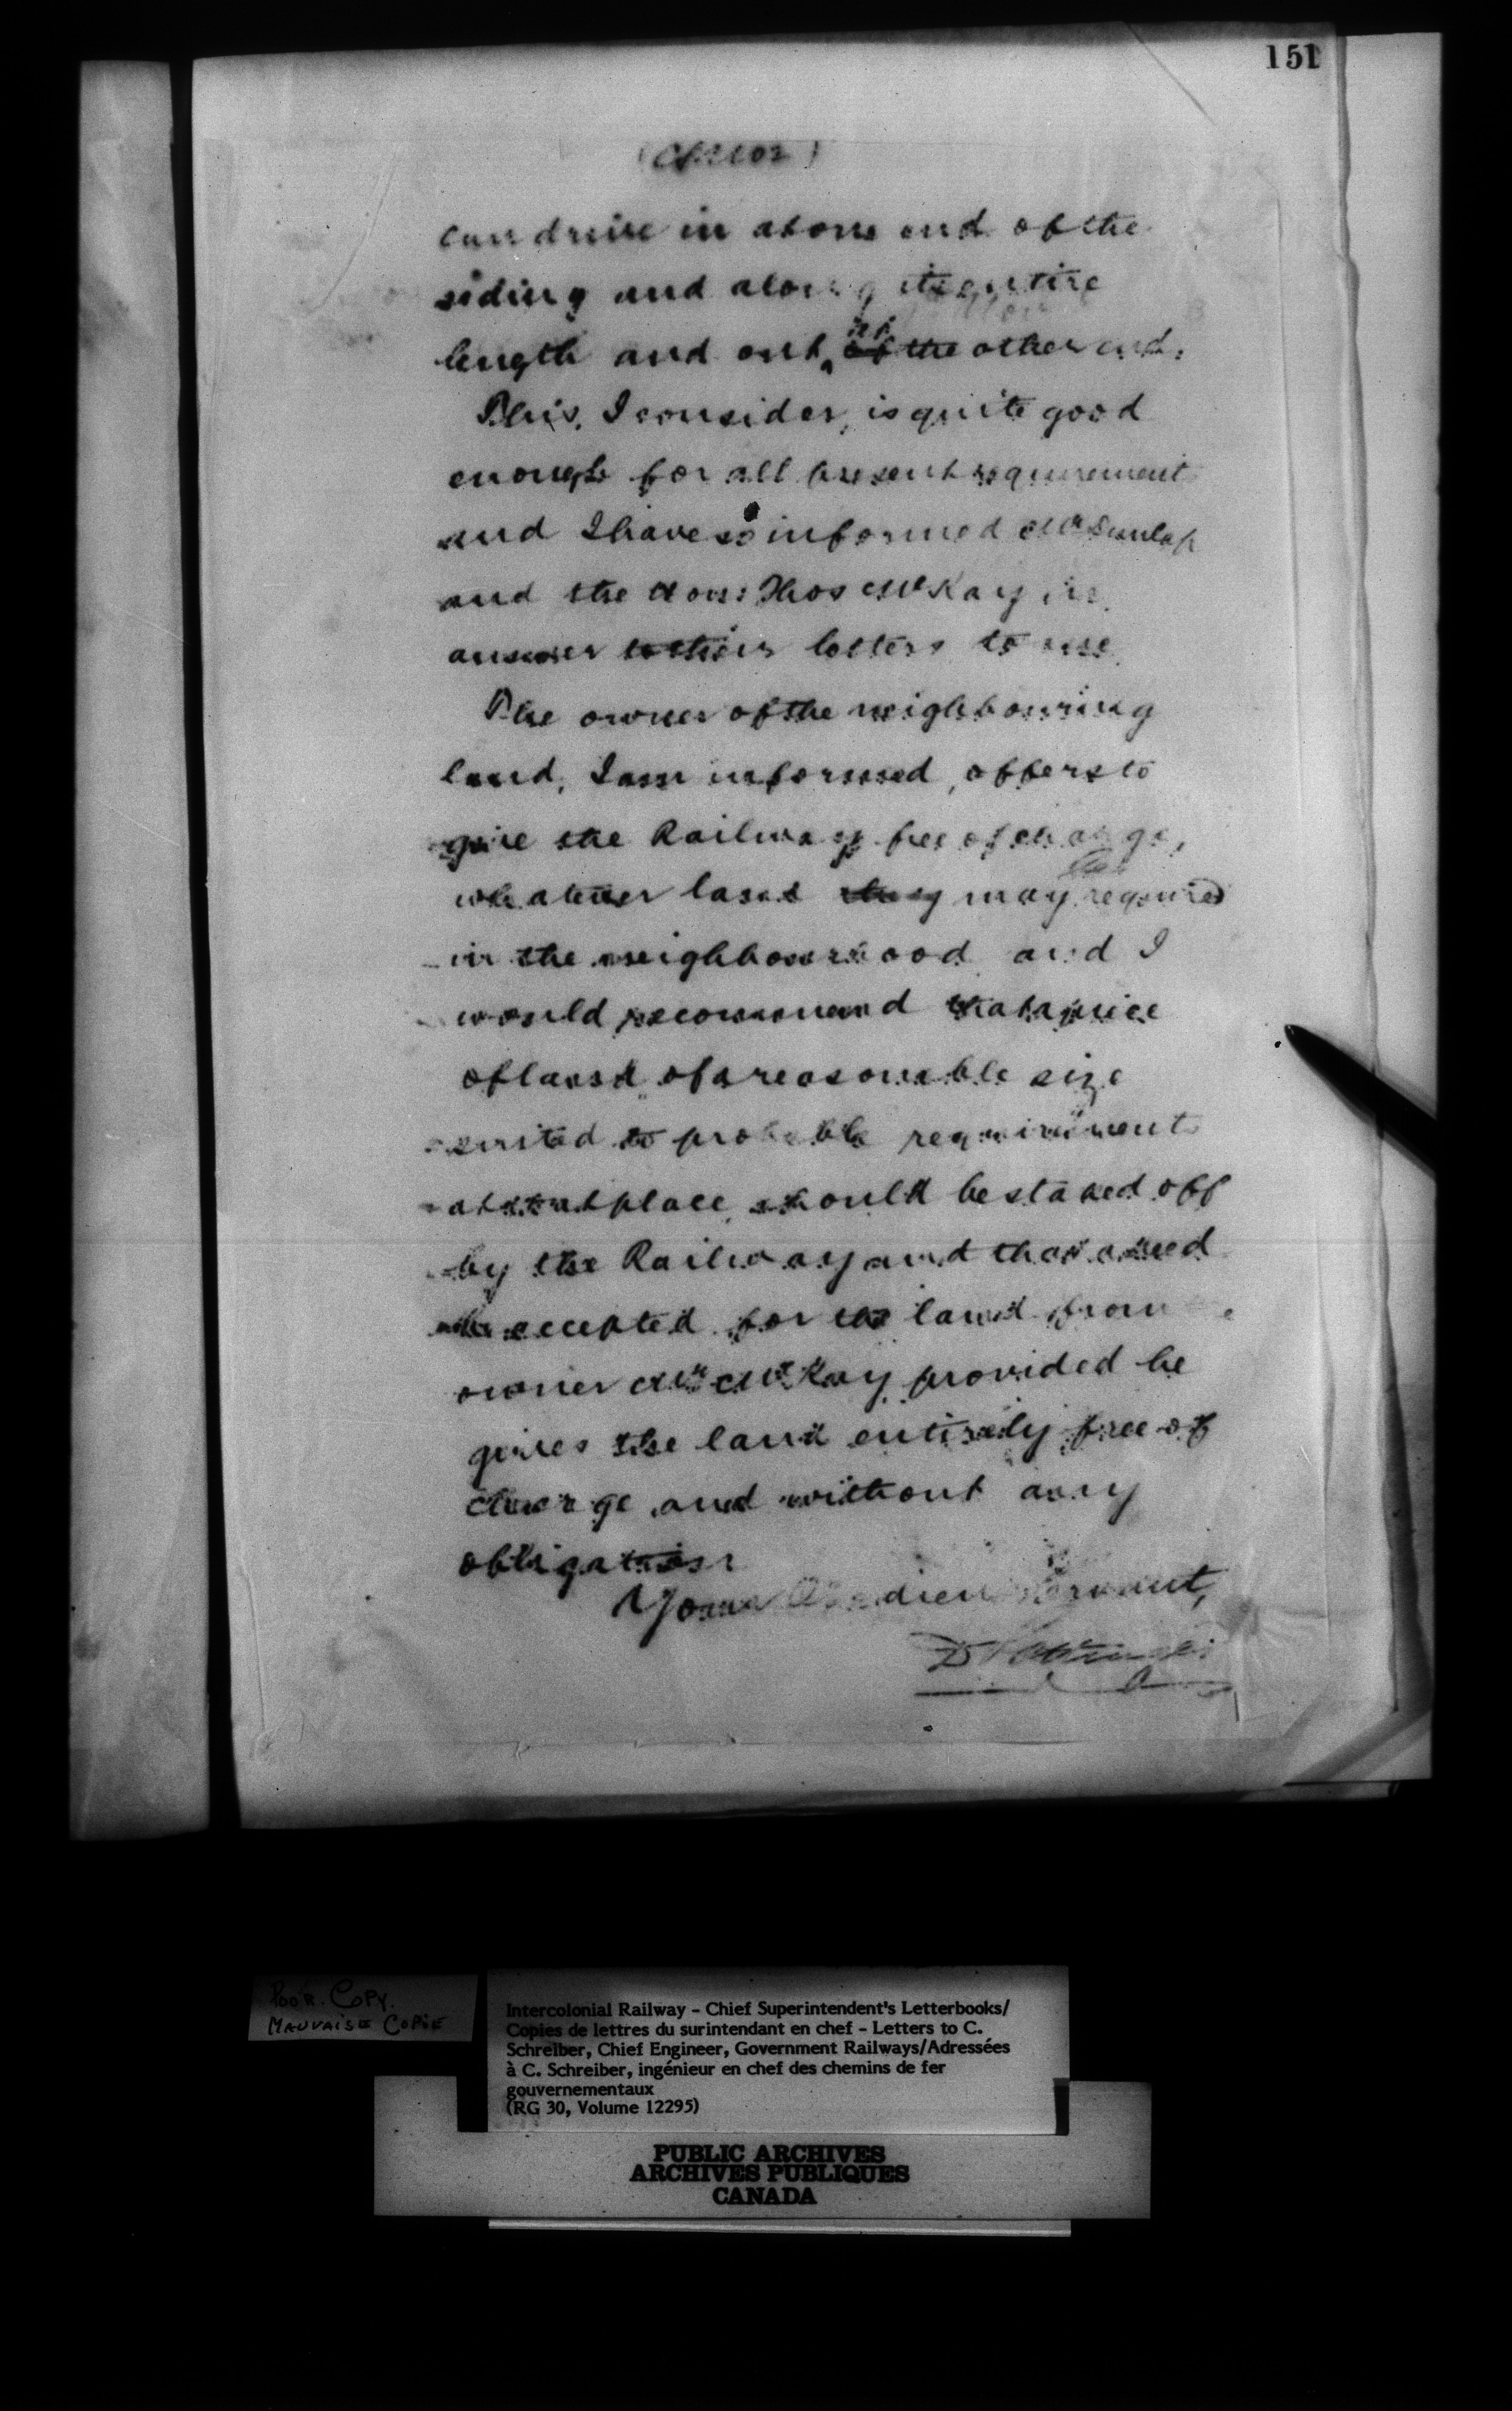 151
can drive in at one end of the
siding and along its entire
length and out at of the other end.
This, I consider, is quite good
enough for all present requirements
and I have so informed Mr Dunlap
and the Hon: Thos McKay in
answer to their letters to me.
The owner of the neighbouring
land, I am informed, offers to
give the Railway free of charge,
whatever land they may be required
in the neighbourhood and I
would recommend that a piece
of land of a reasonable size
suited to probable requirements
at that place should be staked off
by the Railway and that a deed
be accepted for the land from
owner Mr McKay provided he
gives the land entirely free of
charge and without any
obligation
Your Obedient Servant,
D Pottinger
Poor Copy.
Mauvaise Copie
Intercolonial Railway – Chief Superintendent's Letterbooks/
Copies de lettres du surintendant en chef – Letters to C.
Schreiber, Chief Engineer, Government Railways/Adressées
à C. Schreiber, ingénieur en chef des chemins de fer
gouvernementaux
(RG 30, Volume 12295)
PUBLIC ARCHIVES
ARCHIVES PUBLIQUES
CANADA